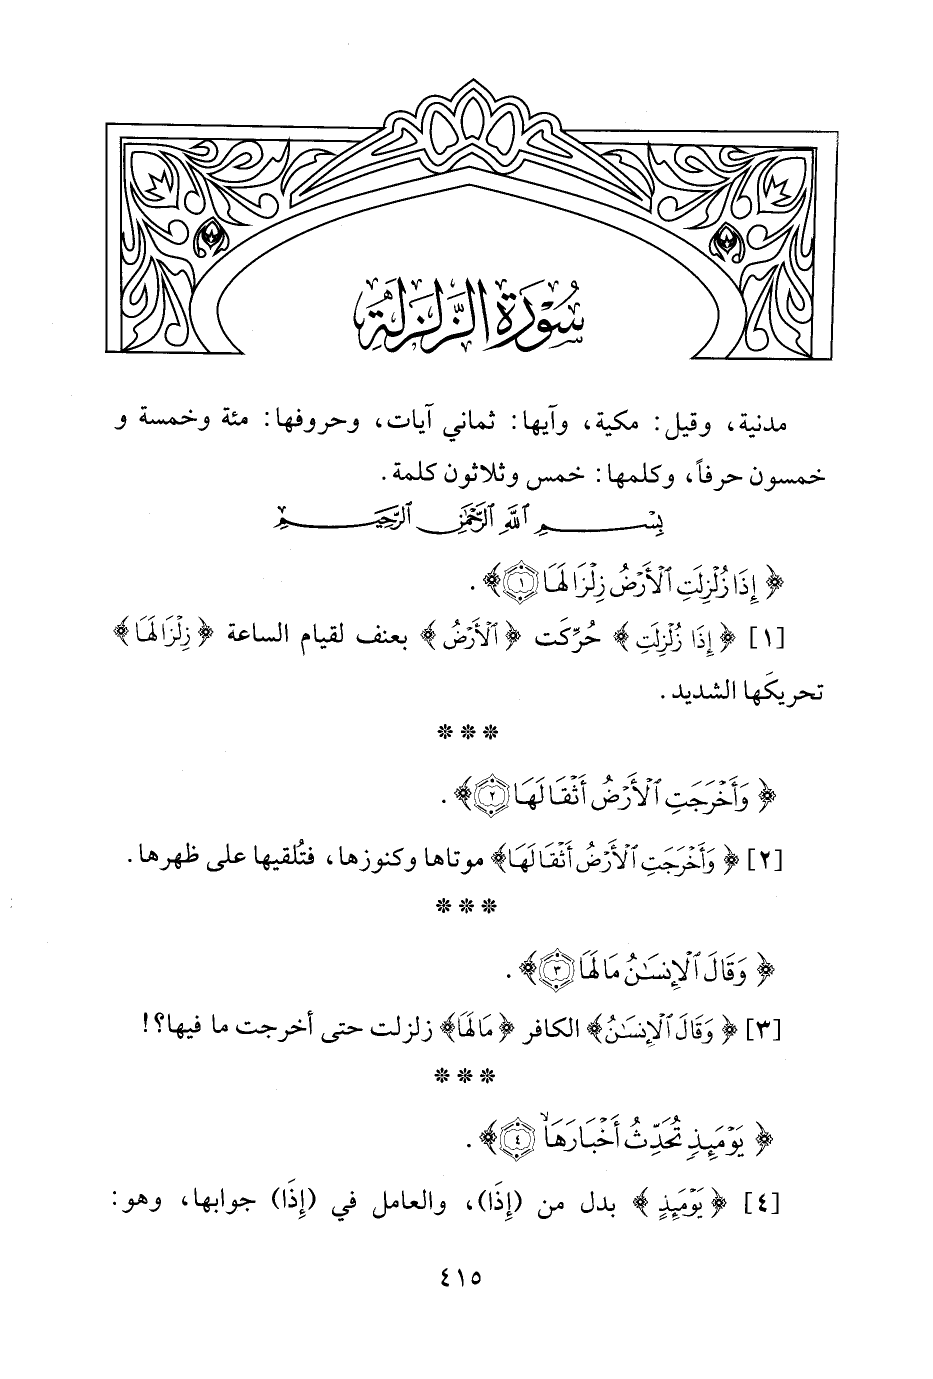 سُورَةُ الزَّلْزَلَةِ
مدنية، وقيل: مكية، وآيها: ثماني آيات، وحروفها: مئة وخمسة و
خمسون حرفاً، وكلمها: خمس وثلاثون كلمة.
بِسْمِ اللَّهِ الرَّحْمَٰنِ الرَّحِيمِ
﴿إِذَا زُلْزِلَتِ ٱلْأَرْضُ زِلْزَالَهَا ١﴾.
[١] ﴿إِذَا زُلْزِلَتِ﴾ حُرِّكَت ﴿ٱلْأَرْضُ﴾ بعنف لقيام الساعة ﴿زِلْزَالَهَا﴾
تحريكَها الشديد.
* * *
﴿وَأَخْرَجَتِ ٱلْأَرْضُ أَثْقَالَهَا ٢﴾.
[٢] ﴿وَأَخْرَجَتِ ٱلْأَرْضُ أَثْقَالَهَا﴾ موتاها وكنوزها، فتُلقيها على ظهرها.
* * *
﴿وَقَالَ ٱلْإِنسَٰنُ مَا لَهَا ٣﴾.
[٣] ﴿وَقَالَ ٱلْإِنسَٰنُ﴾ الكافر ﴿مَا لَهَا﴾ زلزلت حتى أخرجت ما فيها؟!
* * *
﴿يَوْمَئِذٍ تُحَدِّثُ أَخْبَارَهَا ٤﴾.
[٤] ﴿يَوْمَئِذٍ﴾ بدل من (إِذَا)، والعامل في (إِذَا) جوابها، وهو:
٤١٥